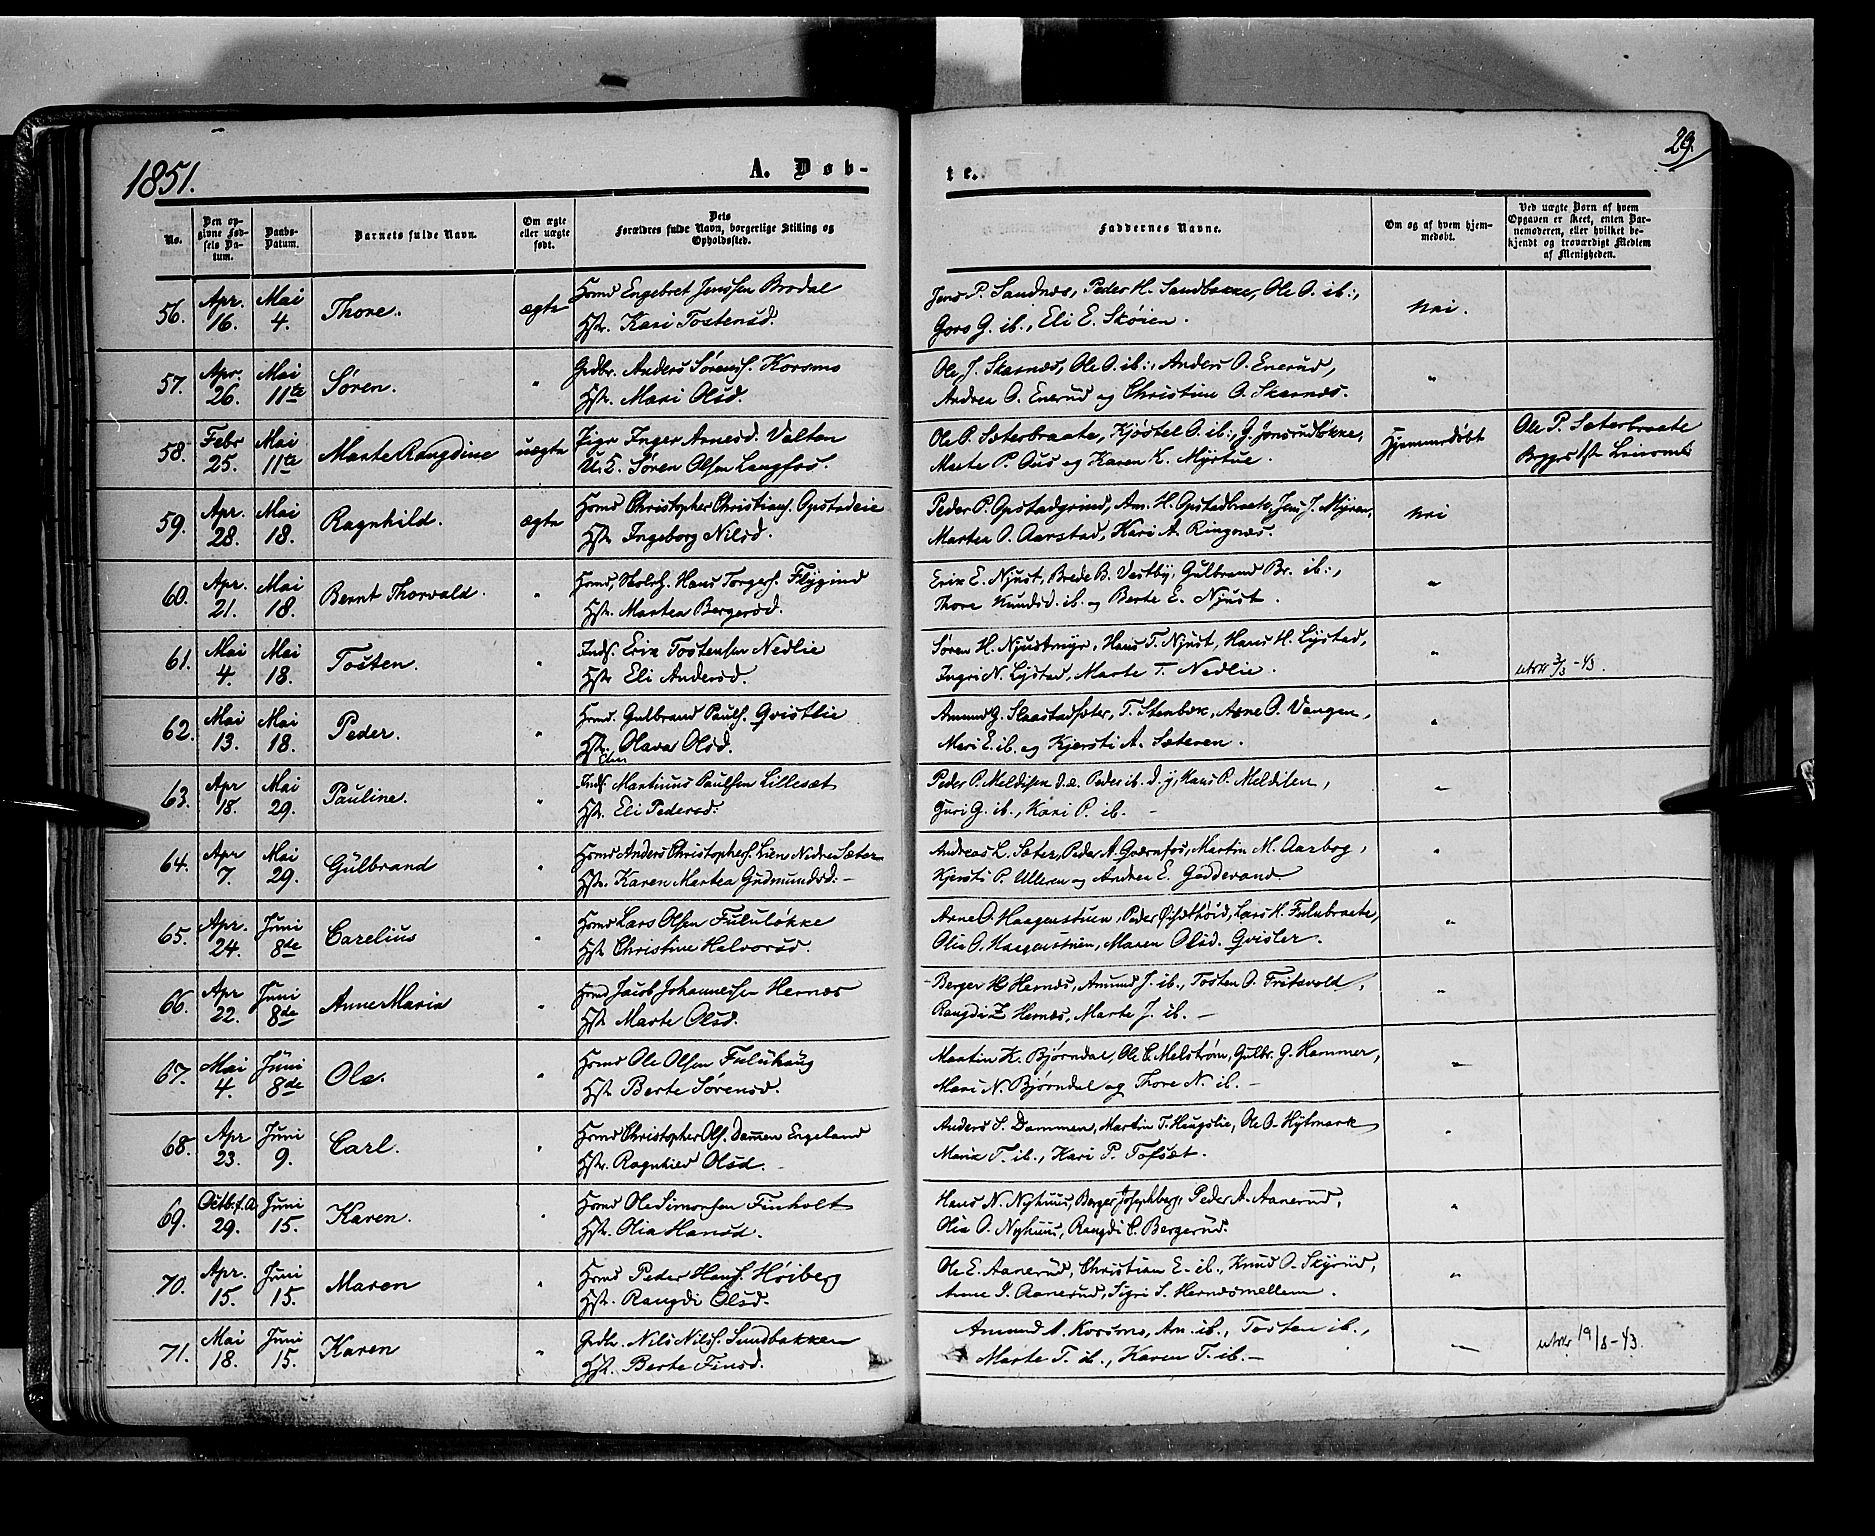 1851.
A. Døb-
te.
29.
No.
Den opgivne Fødsels Datum.
Daabs-Datum.
Barnets fulde Navn.
Om ægte eller uægte født.
Dets Forældres fulde Navn, borgerlige Stilling og Opholdssted.
Faddernes Navne.
Om og af hvem hjemmedøbt.
Ved uægte Børn af hvem Opgaven er skeet, enten Barnemoderen, eller hvilket bekjendt og troværdigt Medlem af Menigheden.
56. Apr. 16. Mai 4. Thore. ægte
Hsmd Engebret Jenssen Brodal
Hst. Kari Tostensd.
Jens P. Sandnæs, Peder H. Sandbakke, Ole O. ib:,
Goro G. ib., Eli E. Skøien.
Nei.
57. Apr. 26. Mai 11te Søren. "
Grdbr. Anders Sørens. Korsmo
Hst. Mari Olsd.
Ole J. Skarnæs, Ole O. ib:, Anders O. Enerud,
Andrea O. Enerud og Christine O. Skarnæs.
"
58. Febr 25. Mai 11te Marte Rangdine uægte
Pige Inger Arnesd. Valten
U.K. Søren Olsen Langfos.
Ole P. Sæterbraate, Kjøstel O. ib:, G. Jonsrudløkke,
Marte P. Aus og Karen K. Myrtue.
Hjemmedøbt
Ole P. Sæterbraate
59. Apr. 28. Mai 18. Ragnhild. ægte
Hsmd Christopher Christians. Opstadeie
Hst. Ingeborg Nilsd.
Peder P. Opstadgrind, Am. H. Opstadbraate, Jens J. Myren,
Martea O. Aarstad, Kari A. Ringnæs.
Nei
60. Apr. 21. Mai 18. Bernt Thorvald. "
Hsmd, Skolel. Hans Torgers. Flygind
Hst. Martea Bergersd.
Erik E. Njust, Brede B. Vestby, Gulbrand Br. ib:,
Thore Knudsd. ib. og Berte E. Njust.
"
61. Mai 4. Mai 18. Tosten. "
Inds. Erik Tostensen Nedlie
Hst. Eli Andersd.
Søren H. Njustmyr, Hans T. Njust, Hans H. Lystad,
Ingri N. Lystad, Marte T. Nedlie.
"
62. Mai 13. Mai 18. Peder. "
Hsmd. Gulbrand Pauls. Qvistlie
Hst. Olava Olsd.
Amund G. Slaastadsæter, T. Stenbæk, Arne O. Vangen,
Mari E. ib. og Kjersti A. Sæteren.
"
63. Apr 18. Mai 29. Pauline. "
Inds. Martinus Paulsen Lillesæt
Hst. Eli Pedersd.
Peder P. Meldisen d.æ. Peder ib. d.y, Hans P. Meldisen,
Guri G. ib., Kari P. ib.
"
64. Apr 7. Mai 29. Gulbrand "
Hsmd Anders Christophers. Lien Nedre Sæter
Hst. Karen Martea Gudmundsd.
Andreas L. Sæter, Peder A. Qværnfos, Martin M. Aarbog,
Kjersti P. Ulleren og Andrea E. Godderand
"
65. Apr. 24. Juni 8de Carelius "
Hsmd Lars Olsen Fululøkke
Hst Christine Halvorsd.
Arne O. Haagenstuen, Peder Øisæthøid, Lars H. Fulubraate,
Olia O. Haagenstuen, Maren Olsd. Qvisler.
"
66. Apr 22. Juni 8de Anne Maria "
Hsmd Jacob Johannessen Hernæs
Hst. Marte Olsd.
Berger H Hernæs, Amund J. ib., Tosten O. Fritsvold,
Rangdi Z Hernæs, Marte J. ib.
"
67. Mai 4. Juni 8de Ole. "
Hsmd Ole Olsen Fuluhaug
Hst. Berte Sørensd.
Martin K. Bjørndal, Ole C. Melstrøm, Gulbr. G. Hammer,
Mari N. Bjørndal og Thore N. ib.
"
68. Apr 23. Juni 9. Carl. "
Hsmd Christopher Ols. Dammen Engeland
Hst. Ragnhild Olsd.
Anders S. Dammen, Martin T. Haugslie, Ole O. Hytmark
Marie T. ib., Kari P. Tofsæt.
"
69. Octb. f.A. 29. Juni 15. Karen. "
Hsmd Ole Simonsen Finholt
Hst. Olia Hansd.
Hans N. Nyhuus, Berger Josephberg, Peder A. Aanerud,
Olia O. Nyhuus, Rangdi C. Bergerud.
"
70. Apr. 15. Juni 15. Maren "
Hsmd Peder Hans. Høiberg
Hst. Rangdi Olsd.
Ole E. Aanerud, Christian E. ib., Knud O. Skyrud,
Anne J. Aanerud, Sigri S. Hernæsmellem.
"
71. Mai 18. Juni 15. Karen "
Grdbr. Nils Nils. Sundbakken
Hst. Berte Finsd.
Amund A. Korsmo, Am. ib., Tosten ib.,
Marte T. ib., Karen T. ib.
"
19/8-43.